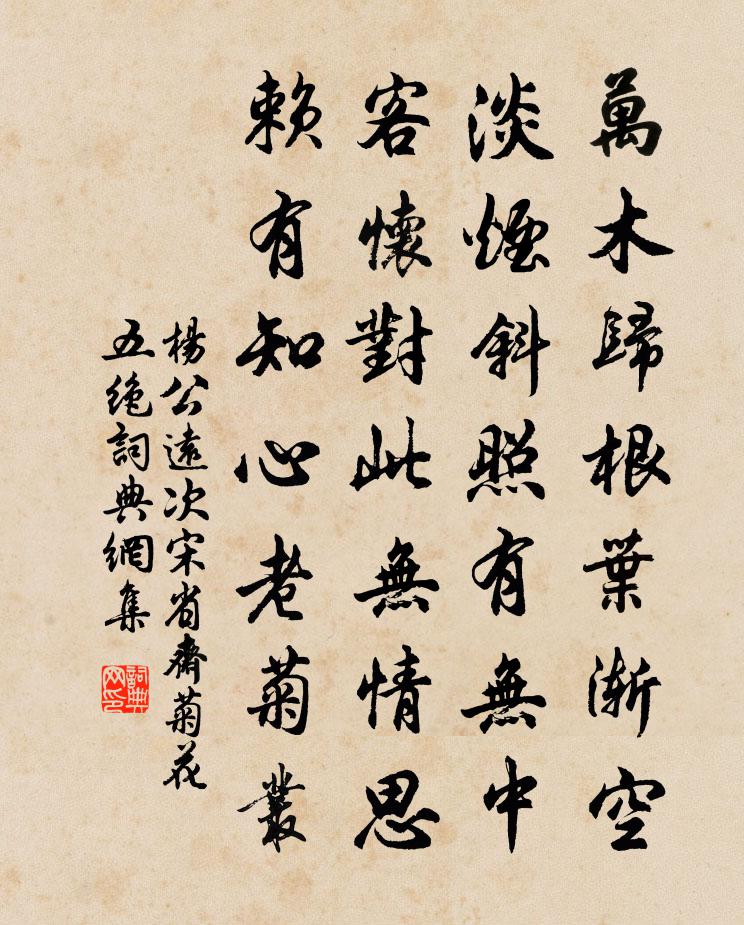 萬木歸根葉漸空
淡煙斜照有無中
客懷對此無情思
賴有知心老菊叢
楊公遠次宋省齋菊花
五绝詞典網集
詞典網印